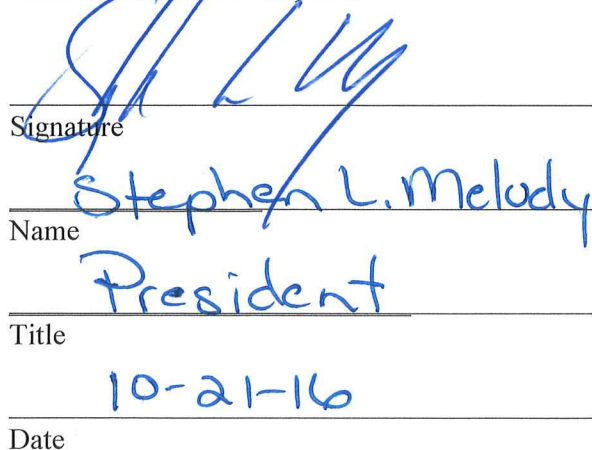 Signature
Stephen L. Melody
Name
President
Title
10-21-16
Date